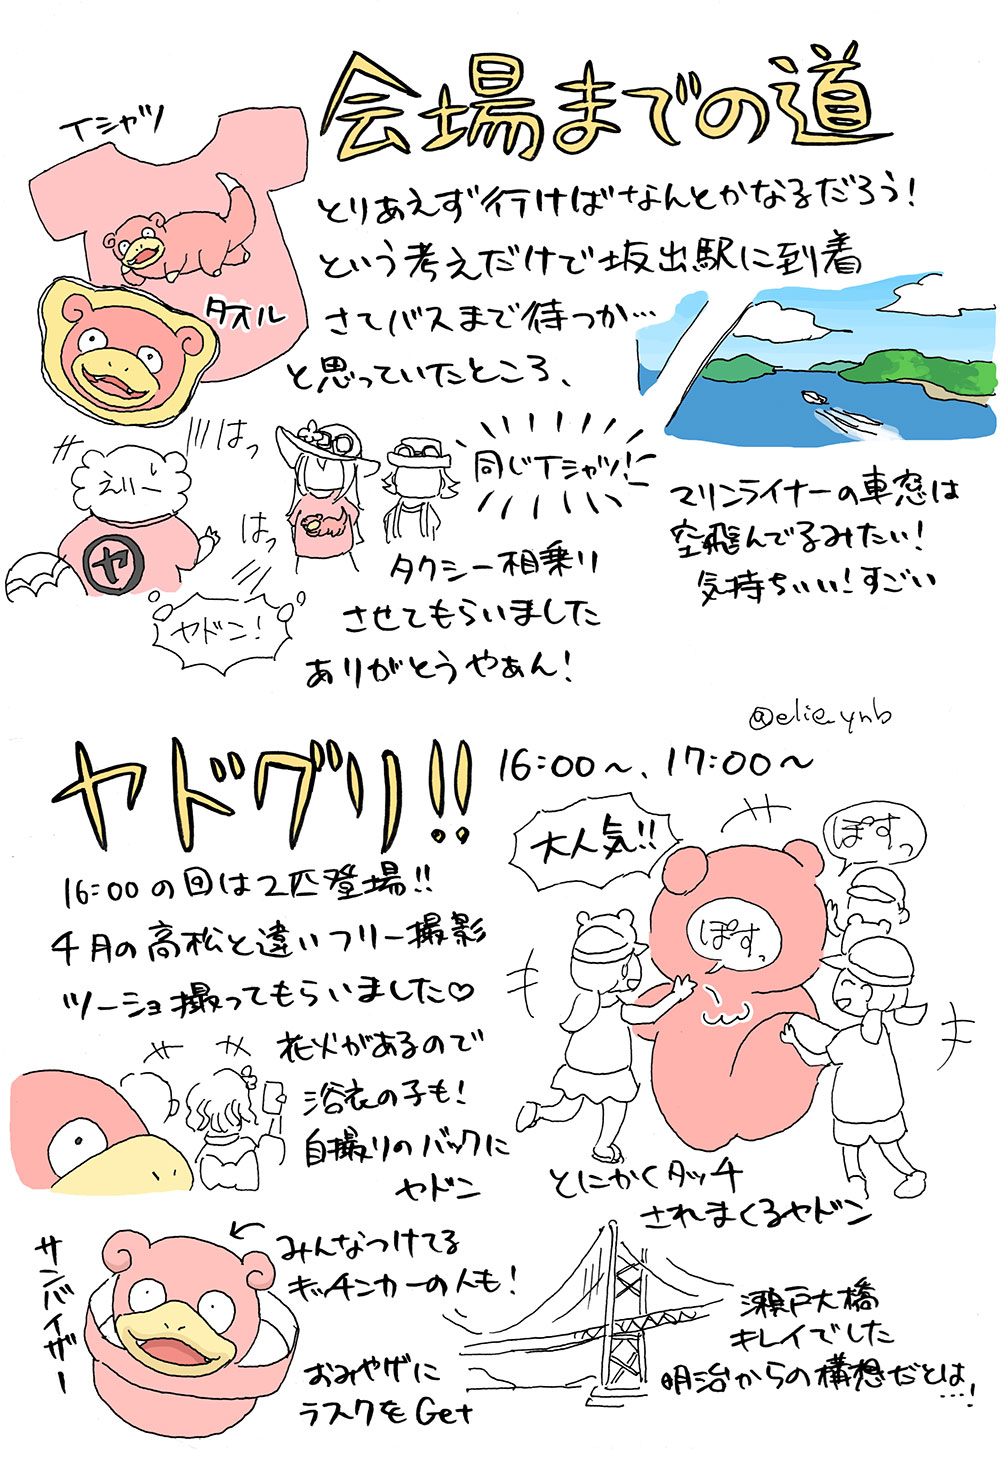 会場までの道
Tシャツ
とりあえず行けばなんとかなるだろう！
という考えだけで坂出駅に到着
タオル
さてバスまで待つか…
と思っていたところ、
はっ
えりー
ヤ
同じTシャツ！
はっ
ヤドン！
タクシー相乗り
させてもらいました
ありがとうやぁん！
マリンライナーの車窓は
空飛んでるみたい！
気持ちいい！すごい
@elie_ynb
ヤドグリ!!
16:00〜、17:00〜
16:00の回は2匹登場!!
4月の高松と違いフリー撮影
ツーショ撮ってもらいました♡
花火があるので
浴衣の子も！
自撮りのバックに
ヤドン
大人気!!
ぽすっ
ぽすっ
とにかくタッチ
されまくるヤドン
サンバイザー
みんなつけてる
キッチンカーの人も！
おみやげに
ラスクをGet
瀬戸大橋
キレイでした
明治からの構想だとは…！